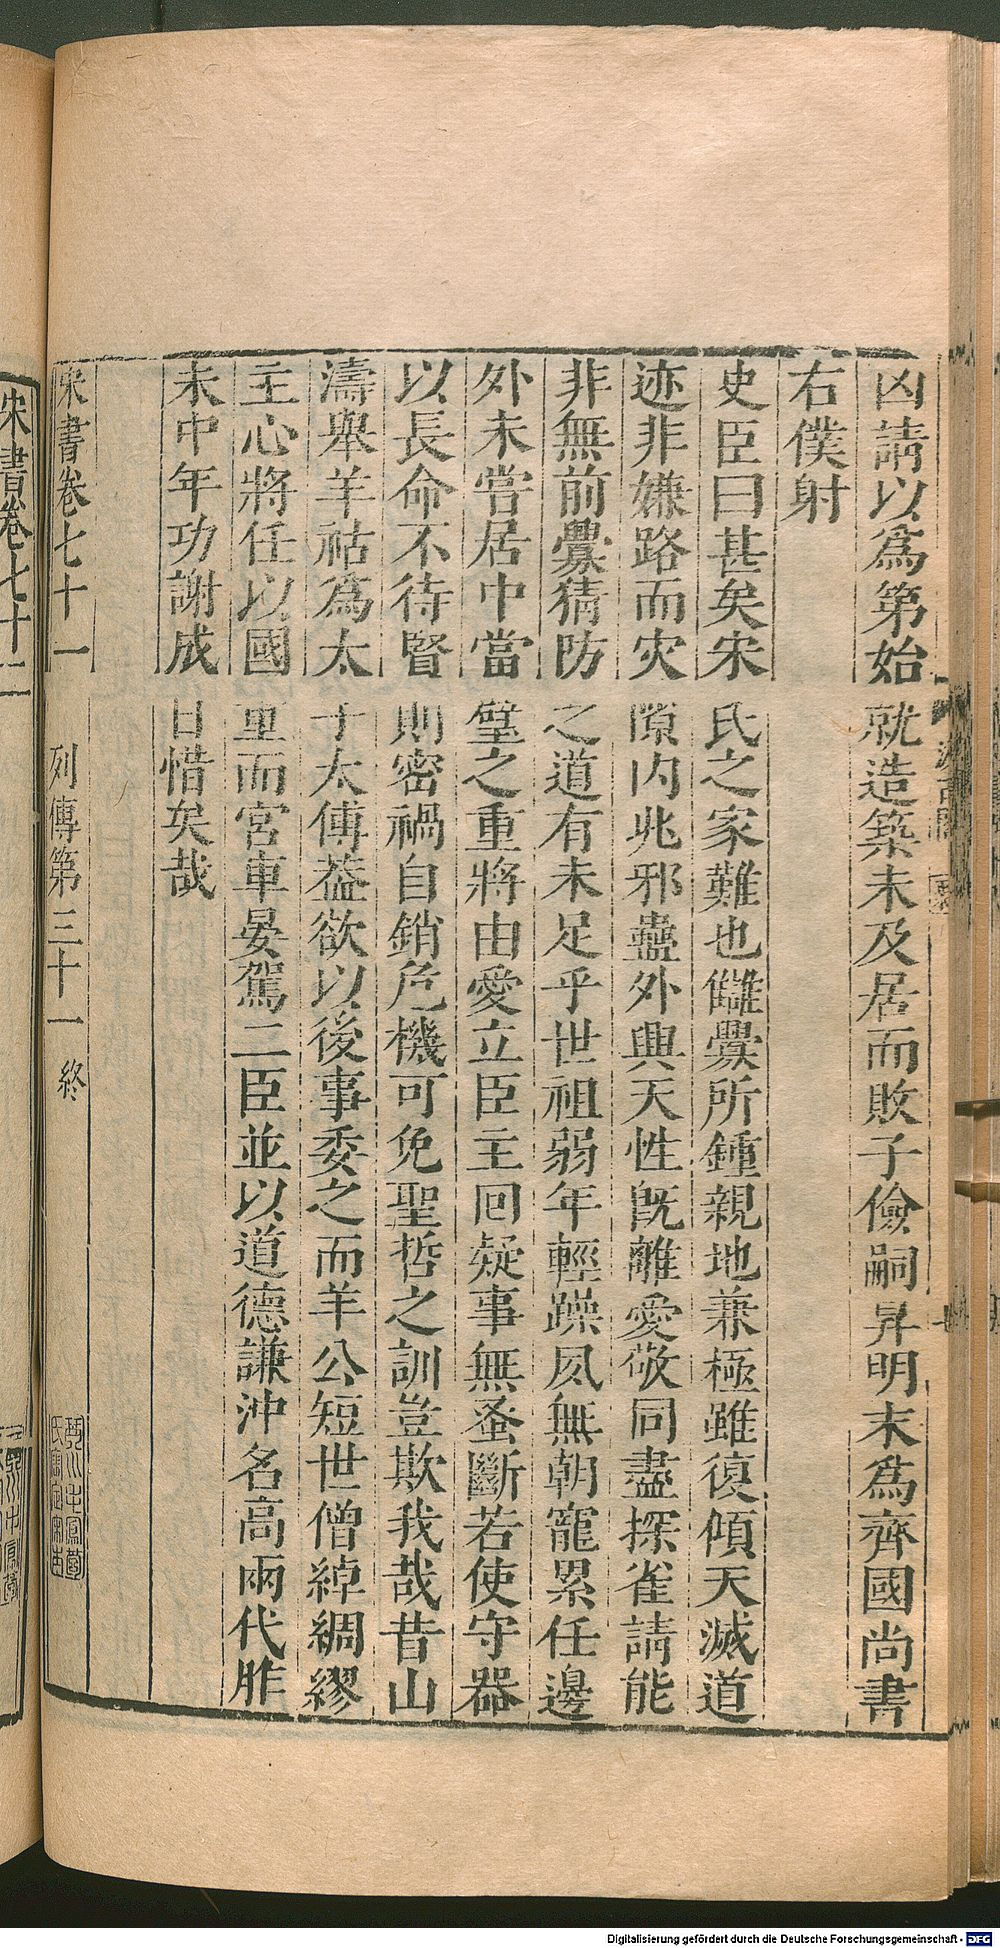 凶請以爲第始就造築未及居而敗子儉嗣昇明末爲齊國尚書
右僕射
史臣曰甚矣宋氏之家難也讎釁所鍾親地兼極雖復傾天滅道
迹非嫌路而災隙内兆邪蠱外興天性旣離愛敬同盡探雀請能
非無前釁猜防之道有未足乎世祖弱年輕躁夙無朝寵累任邊
外未嘗居中當璧之重將由愛立臣主回疑事無蚤斷若使守器
以長命不待賢則密禍自銷危機可免聖哲之訓豈欺我哉昔山
濤舉羊祜爲太子太傅葢欲以後事委之而羊公短世僧綽綢繆
主心將任以國重而宮車晏駕二臣並以道德謙沖名高兩代胙
未中年功謝成日惜矣哉
宋書卷七十一 列傳第三十一 終
宋書卷七十二
Digitalisierung gefördert durch die Deutsche Forschungsgemeinschaft - DFG